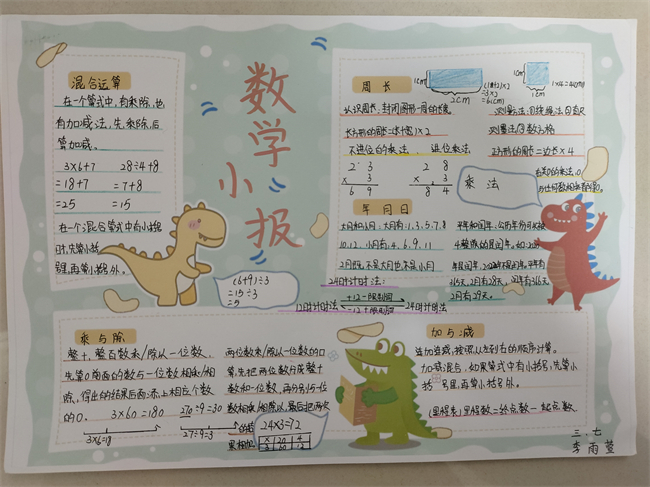 数学
小报
混合运算
在一个算式中,有乘除,也
有加减法,先乘除,后
算加减。
3×6+7
=18+7
=25
28÷4+8
=7+8
=15
在一个混合算式中有小括
时,先算小括
里,再算小括外。
(6+9)÷3
=15÷3
=5
周长
1cm
2cm
(1+2)×2
=3×2
=6(cm)
1cm
1cm
1×4=4(cm)
认识周长:封闭图形一周的长度
长方形的周长=(长+宽)×2
正方形的周长=边长×4
不进位的乘法、进位乘法
2 3
× 3
6 9
2 8
× 3
8 4
乘法
年月日
大月和小月:大月有:1、3、5、7、8
10、12、小月有:4、6、9、11
2月既不是大月也不是小月
24时计时法:
12时计时法
+12-限制词
-12+限制词
24时计时法
365天,2月有28天,闰年有366天
2月有29天。
乘与除
整十、整百数乘/除以一位数,
先算0前面的数与一位数相乘/相
除,得出的结果后面添上相应个数
的0.
3×60=180
270÷9=30
3×6=18
27÷9=3
两位数乘/除以一位数的口
算,先把两位数分成整十
数和一位数,再分别与一位
数相乘/相除,最后把两次
的结
果相加
24×3=72
× 20 4
3 60 12
加与减
连加连减,按照从左到右的顺序计算。
加减混合,如果算式中有小括号,先算小
括号里,再算小括号外。
(里程表)里程数=终点数-起点数
三、七
李雨萱